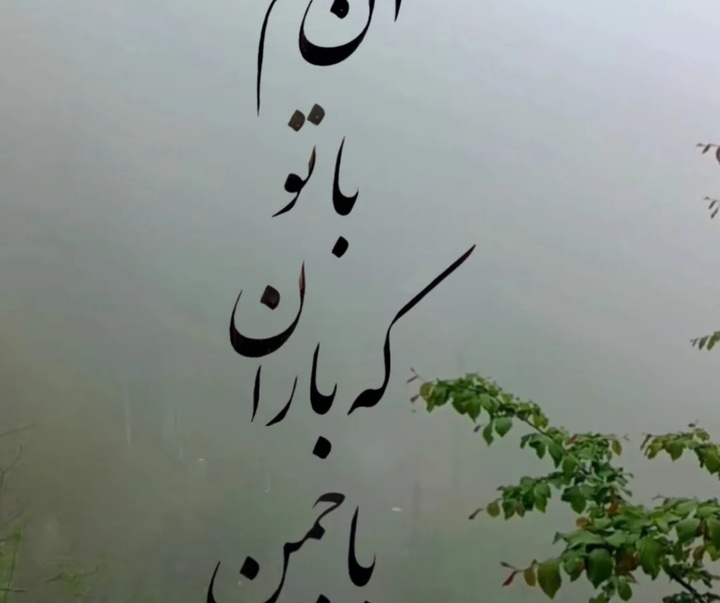 با تو
که باران
با چمن